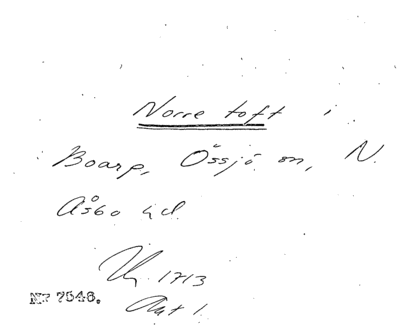 Norre toft i
Boarp, Össjö sn, N.
Åsbo hd.
Uk 1713
Akt 1.
Nr 7546.